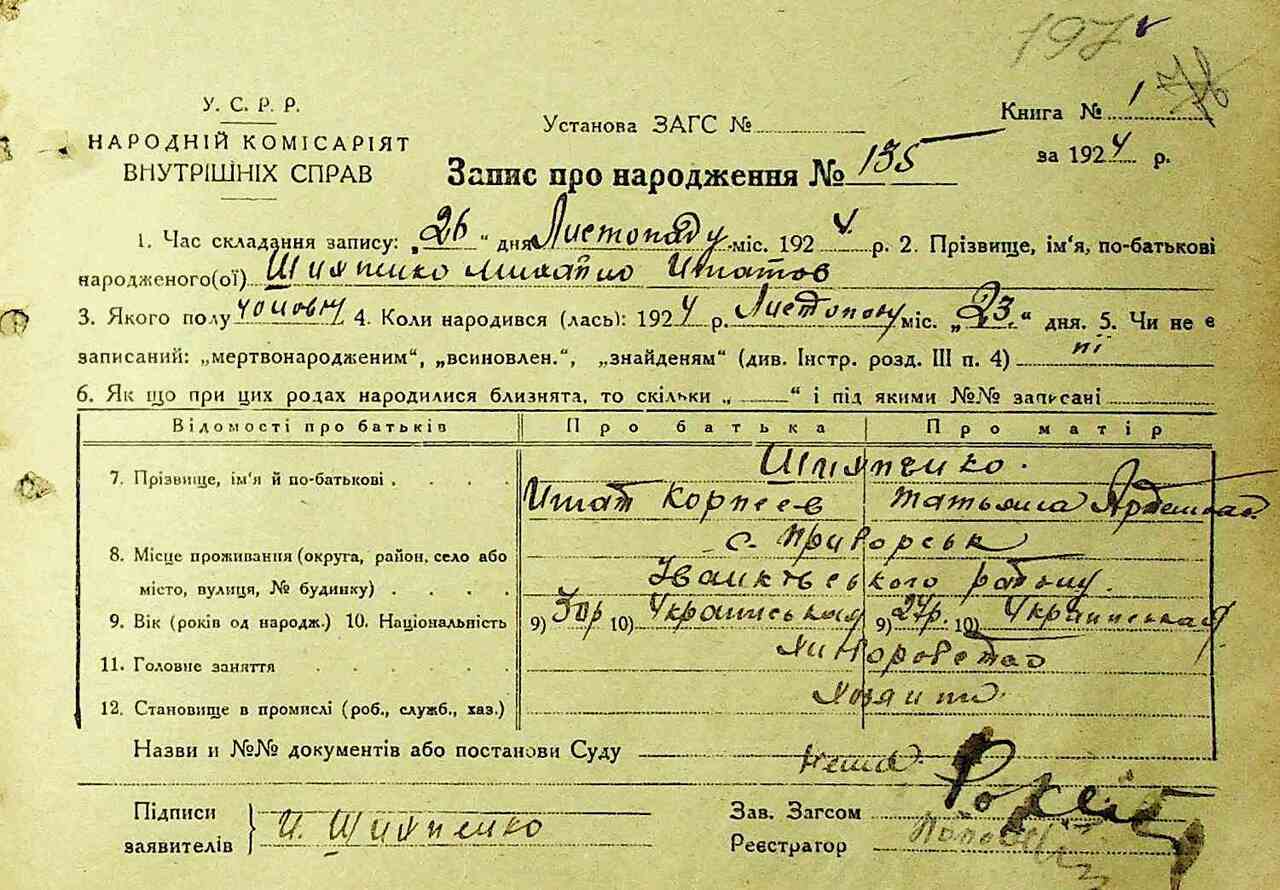 197
У. С. Р. Р.
НАРОДНІЙ КОМІСАРІЯТ
ВНУТРІШНІХ СПРАВ
Установа ЗАГС №
Книга № 1
за 1924 р.
Запис про народження № 135
1. Час складання запису: „26“ дня Листопаду міс. 1924 р. 2. Прізвище, ім'я, по-батькові
народженого(ої)
3. Якого полу 4. Коли народився (лась): 1924 р. Листопаду міс. „23“ дня. 5. Чи не є
записаний: „мертвонародженим“, „всиновлен.“, „знайденям“ (див. Інстр. розд. III п. 4) ні
6. Як що при цих родах народилися близнята, то скільки „ “ і під якими №№ записані
Відомості про батьків Про батька Про матір
7. Прізвище, ім'я й по-батькові
Игнат Корнеев Татьяна
8. Місце проживання (округа, район, село або
місто, вулиця, № будинку)
с. Приборськ
району
9. Вік (років од народж.) 10. Національність 9) 30р 10) Украинськая 9) 27р. 10) Украинськая
11. Головне заняття
Хлиборобство
12. Становище в промислі (роб., служб., хаз.)
Хозяини
Назви и №№ документів або постанови Суду
Нема
Підписи
заявителів
И.
Зав. Загсом
Реєстратор